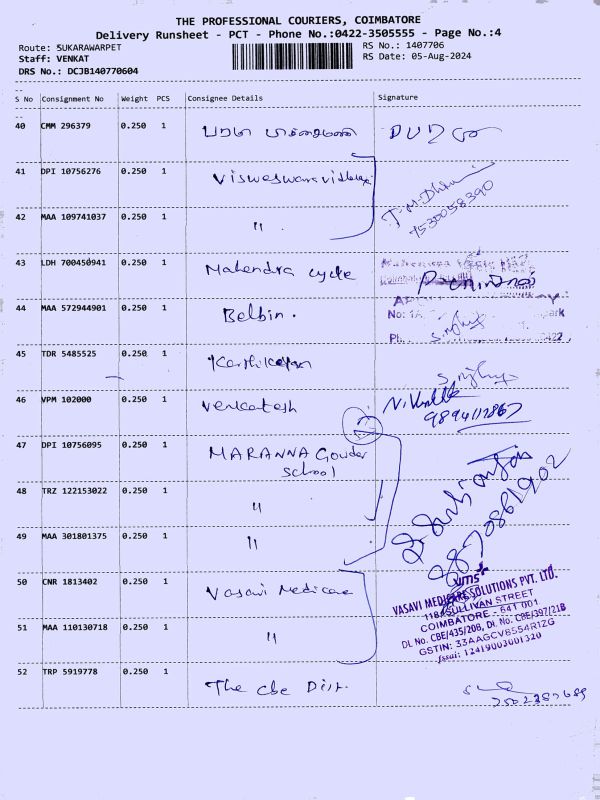 THE PROFESSIONAL COURIERS, COIMBATORE
Delivery Runsheet - PCT - Phone No.:0422-3505555 - Page No.:4
Route: SUKARAWARPET
RS No.: 1407706
Staff: VENKAT
RS Date: 05-Aug-2024
DRS No.: DCJB140770604
S No Consignment No Weight PCS Consignee Details Signature
40 CMM 296379 0.250 1
41 DPI 10756276 0.250 1 Visweswara
T.M.
9530058390
42 MAA 109741037 0.250 1 "
43 LDH 700450941 0.250 1 Mahendra cycle
44 MAA 572944901 0.250 1 Belbin.
45 TDR 5485525 0.250 1 Karthikeyan
46 VPM 102000 0.250 1 Venkatesh
47 DPI 10756095 0.250 1 MARANNA Gowder
School
48 TRZ 122153022 0.250 1 "
49 MAA 301801375 0.250 1 "
50 CNR 1813402 0.250 1 Vasavi Medicare
VASAVI MEDICARE SOLUTIONS PVT. LTD.
118, SULLIVAN STREET
COIMBATORE - 641 001
DL No. CBE/435/20B, DL No. CBE/397/21B
GSTIN: 33AAGCV8554R1ZG
fssai: 12419003001320
51 MAA 110130718 0.250 1 "
52 TRP 5919778 0.250 1 The cbe Dist.